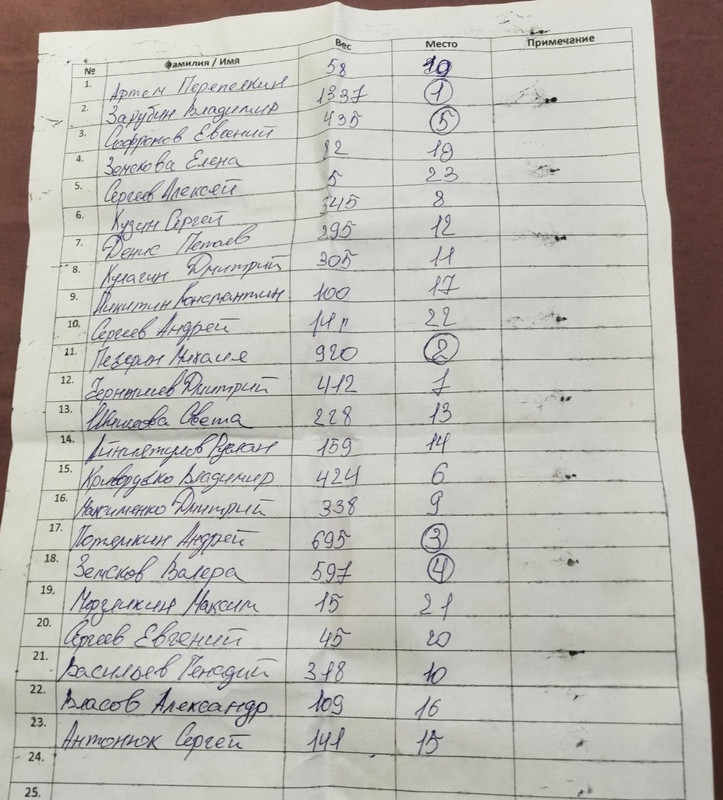 № Фамилия / Имя Вес Место Примечание
1. Артем Перепелкин 58 19
2. Зарубин Владимир 1337 1
3. Софронов Евгений 435 5
4. Земскова Елена 18
5. Сергеев Алексей 5 23
6. Кузин Сергей 345 8
7. Денис 295 12
8. Кулагин Дмитрий 305 11
9. Никитин Константин 100 17
10. Сергеев Андрей 22
11. Михаил 920 2
12. Чернышев Дмитрий 412 7
13. Света 228 13
14. Руслан 159 14
15. Владимир 424 6
16. Максименко Дмитрий 338 9
17. Потемкин Андрей 695 3
18. Земсков Валера 597 4
19. Максим 15 21
20. Сергеев Евгений 45 20
21. Васильев Генадий 318 10
22. Власов Александр 109 16
23. Антонюк Сергей 141 15
24.
25.